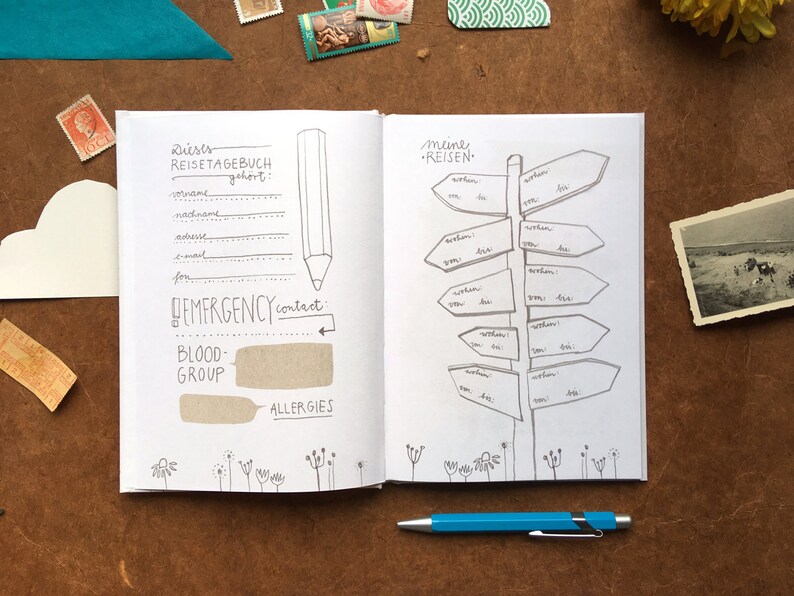 Dieses
REISETAGEBUCH
gehört:
vorname
nachname
adresse
e-mail
fon
!EMERGENCY contact:
BLOOD-
GROUP
ALLERGIES
meine
•REISEN•
wohin:
von: bis:
wohin:
von: bis:
wohin:
von: bis:
wohin:
von: bis:
wohin:
von: bis:
wohin:
von: bis:
wohin:
von: bis:
wohin:
von: bis:
wohin:
von: bis:
wohin:
von: bis: